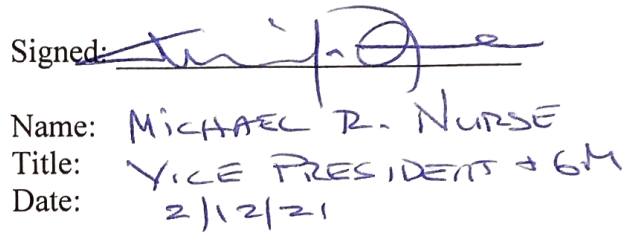 Signed:
Name: MICHAEL R. NURSE
Title: VICE PRESIDENT + GM
Date: 2/12/21